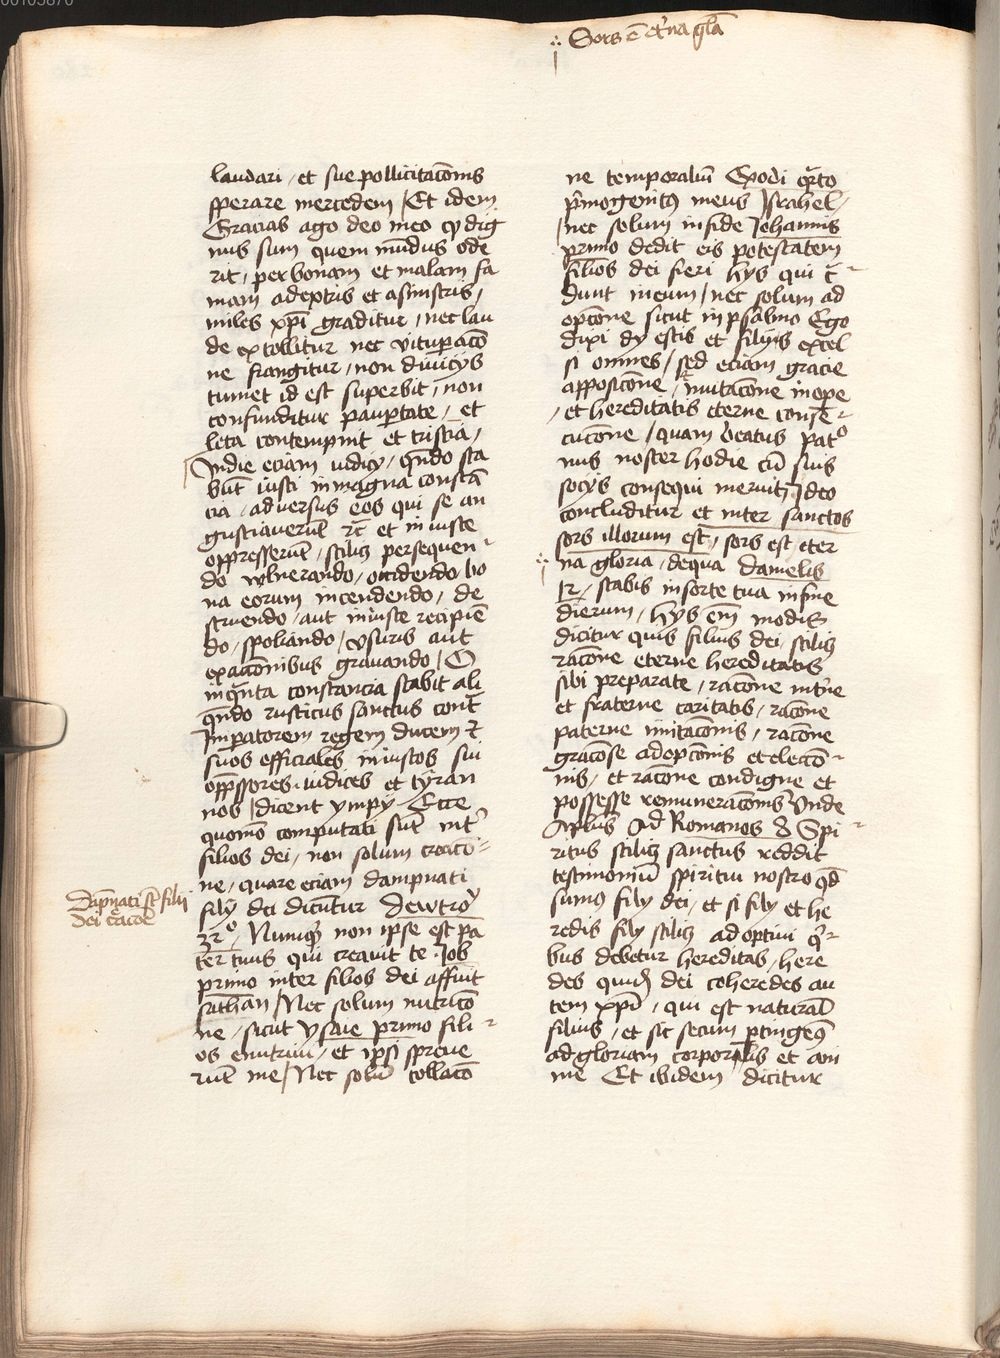 ∴ Sors ē et̄na gl̄a
laudari / et sue pollicitac̄onis
sperare mercedem / Et idem
Gracias ago deo meo ꝙ dig
nus sum quem mūdus ode
rit / per bonam et malam fa
mam a dextris et a sinistris /
miles xp̄i graditur / nec lau
de extollitur nec vituꝑac̄o
ne frangitur / non diuicijs
tumet id est superbit / non
confunditur pauꝑtate / et
leta contempnit et tristia /
Jn die eciam iudicij / qn̄do sta
būt iusti in magna constā
cia / aduersus eos qui se an
gustiauerūt ꝛc̄ et iniuste
oppresserūt / scilicꝫ persequen
do wlnerando / occidendo bo
na eorum incendendo / de
struendo / aut iniuste recipiē
do / spoliando / vsuris aut
exacc̄onibus grauando / O
in qn̄ta constancia stabit ali
qn̄do rusticus sanctus cont̄
Jmperatorem regem ducem ⁊
suos efficiales iniustos sui
opp̄ssores iudices et tyran
nos / dicent ympij Ecce
quom̄o computati sūt int̄
filios dei / non solum creac̄o
ne / quare eciam dampnati
filij dei dicūtur Dewtroͥ
32° / Numqͥd non ipse est pa
ter tuus qui creauit te Job
primo inter filios dei affuit
sathan / Nec solum nutric̄o
ne / sicut ysaie primo fili
os enutriui / et ipsi spreue
rūt me / Nec solū collac̄o
Dāpnati sūt filii
dei
ne temporaliū Exodi qͣrto
p̄mogenitꝰ meus Jsrahel /
/ nec solum in fide Johannis
primo dedit eis potestatem
filios dei fieri hijs qui c̄
dunt in eum / nec solum ad
opc̄one sicut in psalmo Ego
dixi dij estis et filij excel
si omnes / sed eciam gracie
apposic̄one / imitac̄one in ope
/ et hereditatis eterne conse
cucōne / quam beatus pat°
nus noster hodie cū suis
socijs consequi meruit / Jdeo
concluditur et inter sanctos
sors illorum est / sors est eter
∴ na gloria / de qua Danielis
12 / stabis in sorte tua in fine
dierum / hijs em̄ modis
dicitur quis filius dei / scilicꝫ
rac̄one eterne hereditatis
sibi preparate / rac̄one int̄ne
et fraterne caritatis / rac̄one
paterne imitac̄onis / rac̄one
grac̄ose adopc̄onis et elecc̄o
nis / et rac̄one condigne et
possesse remunerac̄onis Unde
Aplūs Ad Romanos 8 Spi
ritus scilicꝫ sanctus reddit
testimoniū spiritui nostro qd̄
sumꝰ filij dei / et si filij et he
redis filij scilicꝫ adoptiui qͥ
bus debetur hereditas / here
des quidē dei coheredes au
tem xp̄i / qui est naturał
filius / et sic secum ꝑtingem̄ꝰ
ad gloriam corporalis et ani
me Et ibidem dicitur